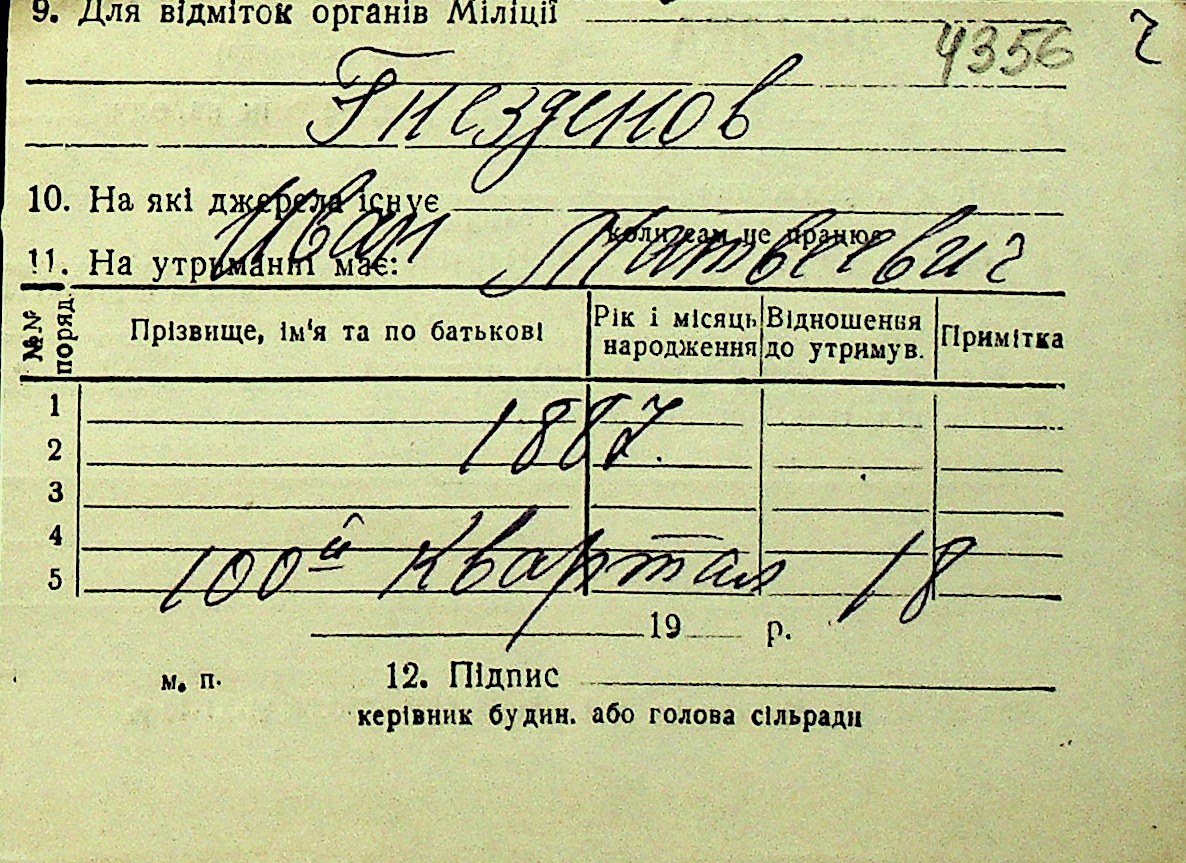 9. Для відміток органів Міліції
4356 2
Гнезденов
10. На які джерела існує
Иван Матвеевич
коли сам це працює
11. На утриманні має:
№№ поряд. Прізвище, ім'я та по батькові Рік і місяць народження Відношення до утримув. Примітка
1
1887.
2
3
4
100й квартал 18
5
19 р.
м. п. 12. Підпис
керівник будин. або голова сільради